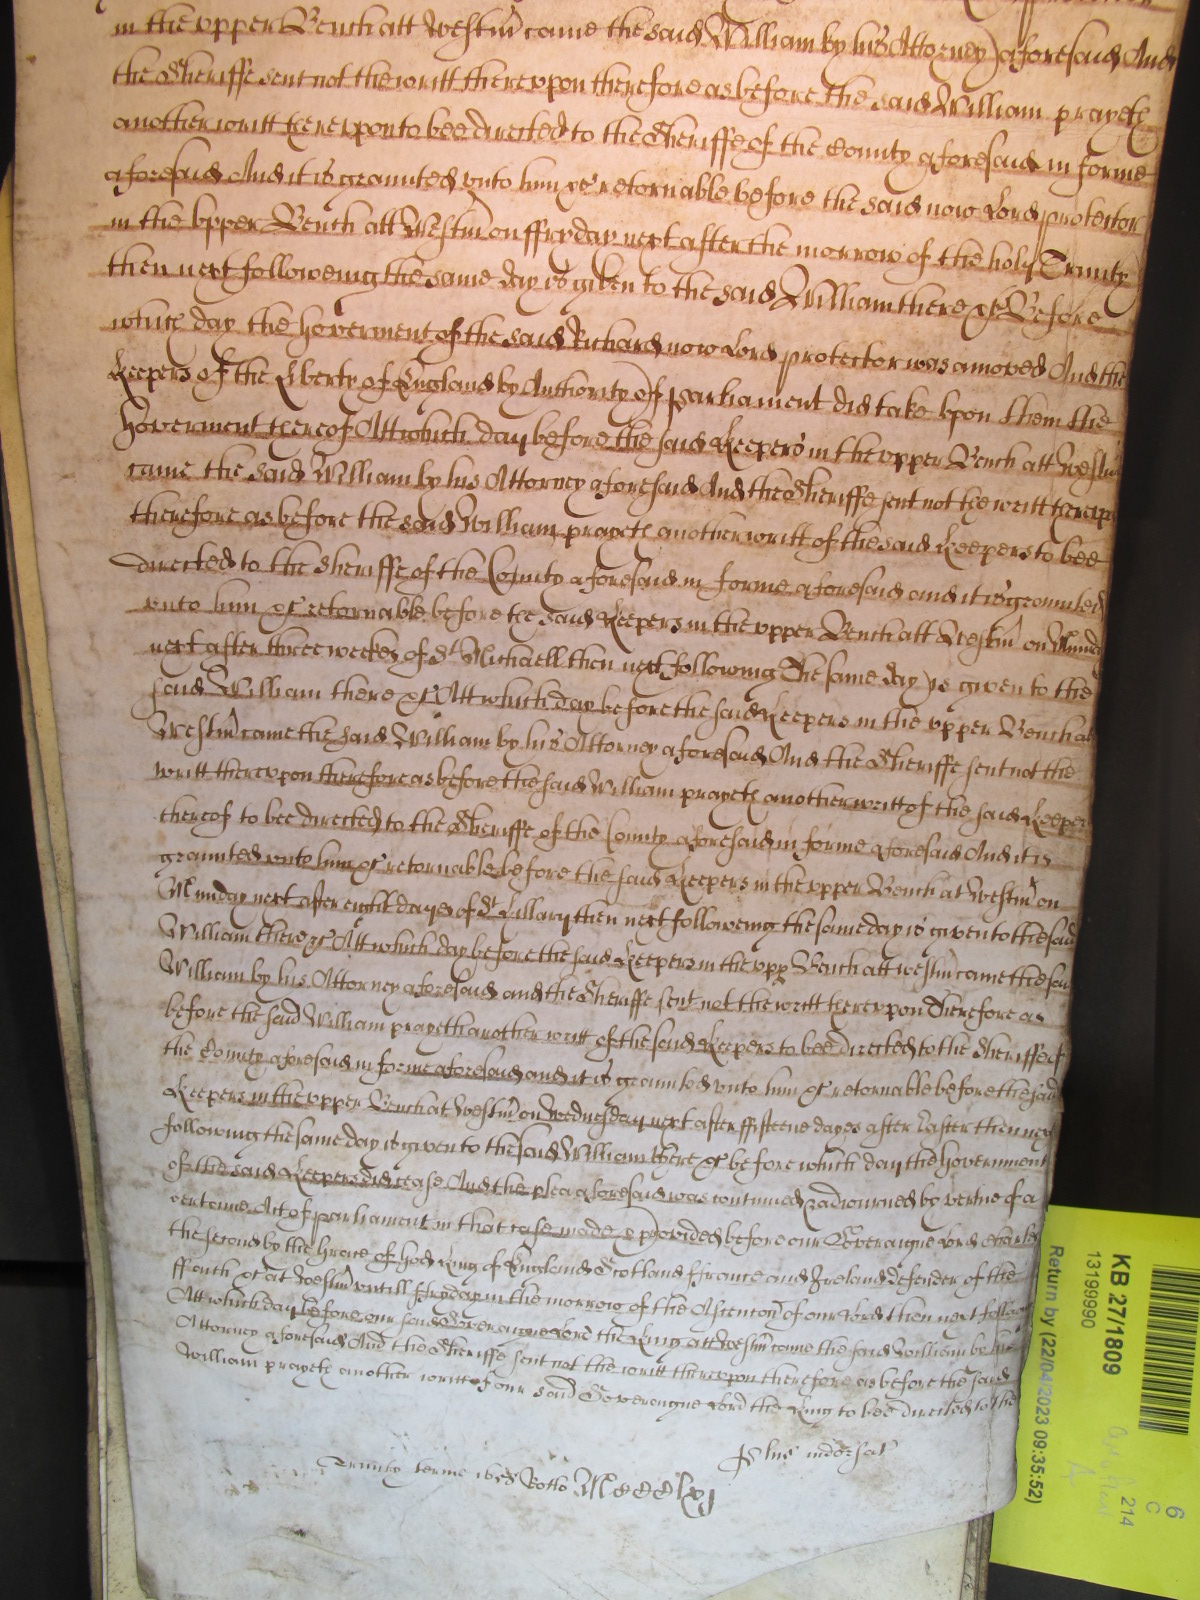 in the vpper Bench att Westm̃ came the said William by his Attorney aforesaid And
the Sheriffe sent not the writt therevpon therefore as before the said William prayeth
another writt therevpon to bee directed to the Sheriffe of the County aforesaid in forme
aforesaid And it is graunted vnto him &c retornable before the said now Lord protector
in the vpper Bench att Westm̃ on ffryday next after the morrow of the holy Trinity
then next followeing the same day is given to the said William there &c Before
which day the Goverment of the said Richard now Lord protector was amoved And the
Keepers of the Liberty of England by Authority of Parliament did take vpon them the
Goverment thereof Att which day before the said Keepers in the vpper Bench att Westm̃
came the said William by his Attorney aforesaid And the Sheriffe sent not the writt therevp
therefore as before the said William prayeth another writt of the said Keepers to bee
directed to the Sheriffe of the County aforesaid in forme aforesaid and it is graunted
vnto him &c retornable before the said Keepers in the vpper Bench att Westm̃ on Munday
next after three weekes of St Michaell then next following The same day is given to the
said William there &c Att which day before the said Keepers in the vpper Bench att
Westm̃ came the said William by his Attorney aforesaid And the Sheriffe sent not the
writt therevpon therefore as before the said William prayeth another writt of the said Keepers
thereof to bee directed to the Sheriffe of the County aforesaid in forme aforesaid And it is
graunted vnto him &c retornable before the said Keepers in the vpper Bench at Westm̃ on
Munday next after eight dayes of St Hillary then next followeing the same day is given to the said
William there &c Att which day before the said Keepers in the vpp Bench att westm̃ came the said
William by his Attorney aforesaid and the Sheriffe sent not the writt therevpon Therefore as
before the said William prayeth another writt of the said Keepers to bee directed to the Sheriffe of
the County aforesaid in forme aforesaid and it is graunted vnto him &c retornable before the said
Keepers in the vpper Bench at Westm̃ on Wednesday next after fifteene dayes after Easter then next
following the same day is given to the said William there &c before which day the Government
of the said Keepers did cease And the plea aforesaid was continued & adiourned by vertue of a
certaine Act of Parliament in that case made & provided before our Soveraigne Lord Charles
the second by the Grace of God King of England Scotland ffrance and Ireland Defender of the
ffaith &c at Westm̃ vntill ffryday in the morrow of the Ascention of our Lord then next followi
Att which day before our said Soveraigne Lord the King att Westm̃ came the said William by his
Attorney aforesaid And the Sheriffe sent not the writt therevpon therefore as before the said
William prayeth another writt of our said Soveraigne Lord the King to bee directed to the
Plus indorsat
Trinity terme Rotlo MCCCClxj
KB 27/1809
13199990
Return by (22/04/2023 09:35:52)
6
C
214